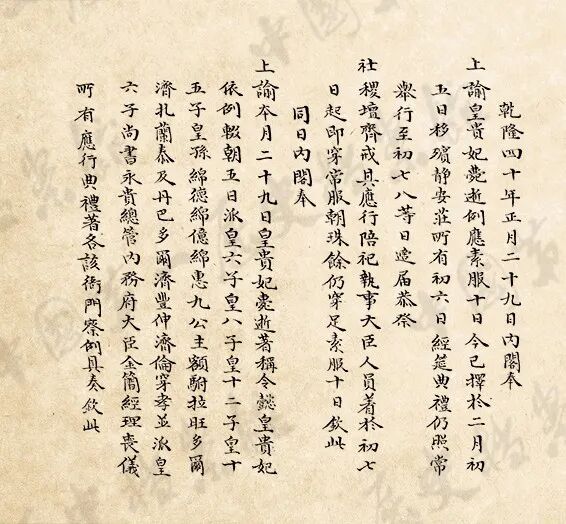 乾隆四十年正月二十九日內閣奉
上諭皇貴妃薨逝例應素服十日今已擇於二月初
五日移殯靜安莊所有初六日經筵典禮仍照常
舉行至初七八等日適屆恭祭
社稷壇齊戒其應行陪祀執事大臣人員著於初七
日起即穿常服朝珠餘仍穿足素服十日欽此
同日內閣奉
上諭本月二十九日皇貴妃薨逝著稱令懿皇貴妃
依例輟朝五日派皇六子皇八子皇十二子皇十
五子皇孫綿德綿億綿惠九公主額駙拉旺多爾
濟扎蘭泰及丹巴多爾濟豐伸濟倫穿孝並派皇
六子尚書永貴總管內務府大臣金簡經理喪儀
所有應行典禮著各該衙門察例具奏欽此